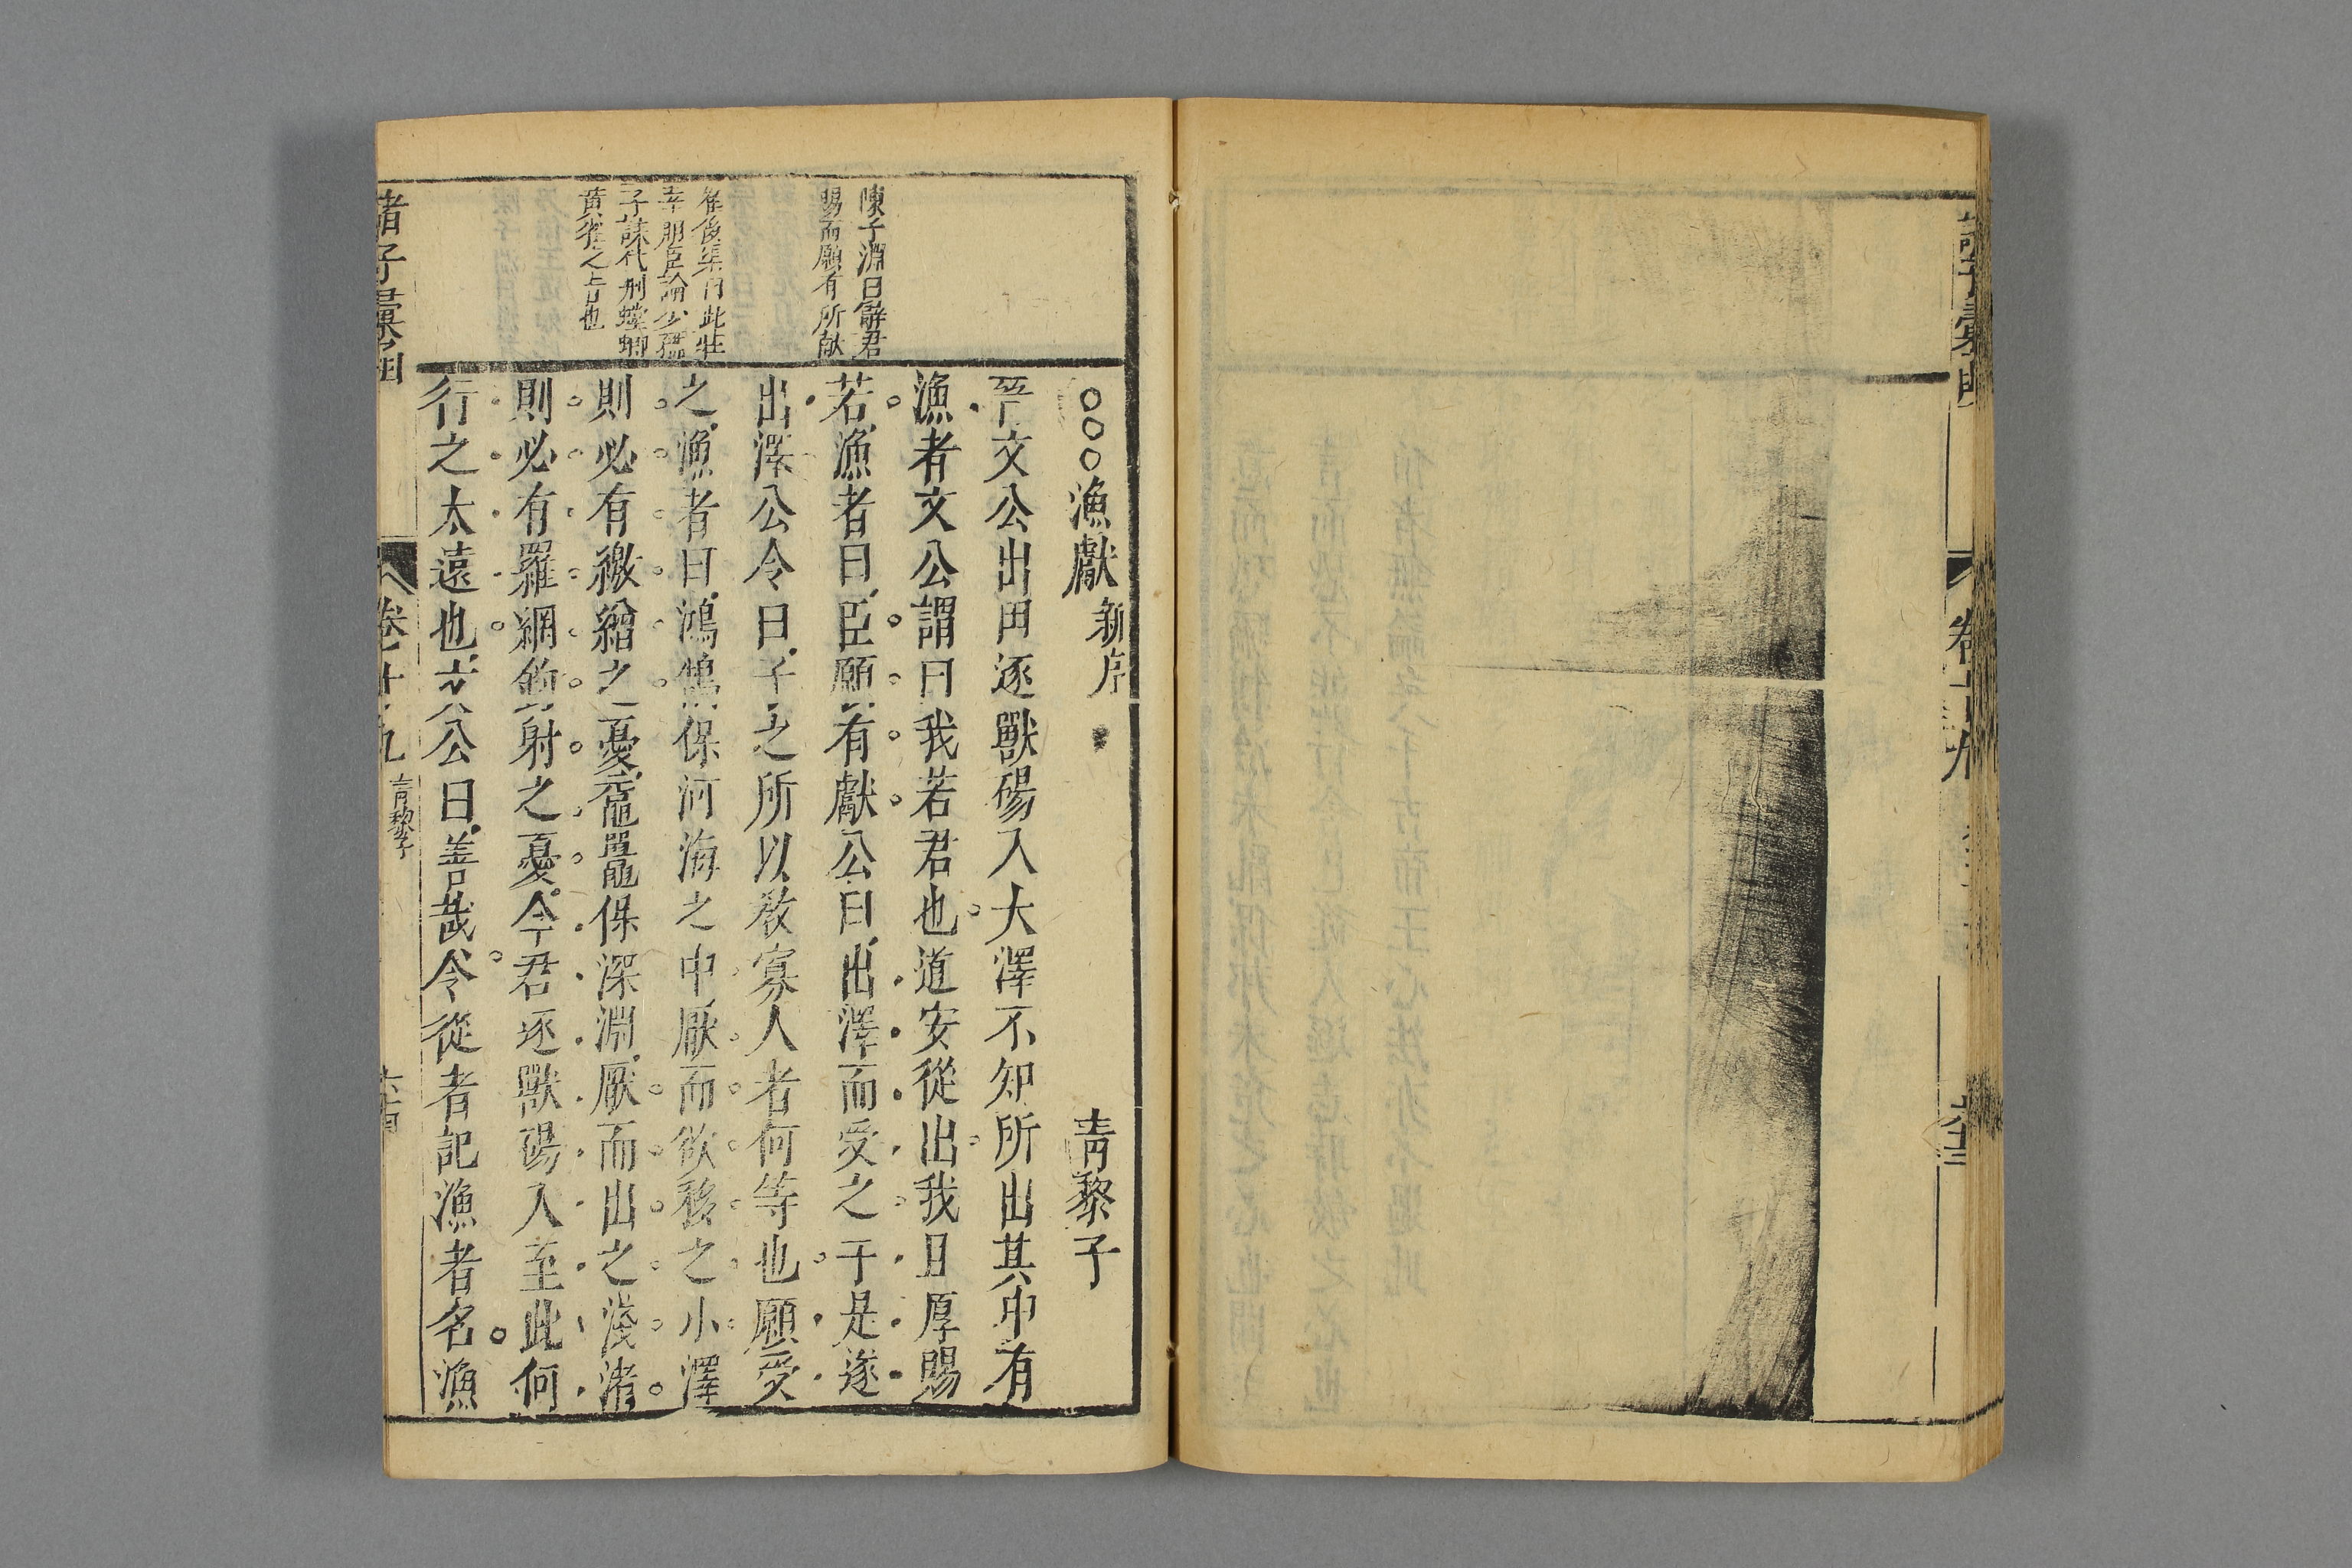 卷十九
○○○漁獻 新序 青黎子
晉文公出田逐獸碭入大澤不知所出其中有
漁者文公謂曰我若君也道安從出我且厚賜
若漁者曰臣願有獻公曰出澤而受之于是遂
出澤公令曰子之所以教寡人者何等也願受
之漁者曰鴻鵠保河海之中厭而欲移之小澤
則必有繳繒之憂黿鼉保深淵厭而出之淺渚
則必有羅網釣射之憂今君逐獸碭入至此何
行之太遠也文公曰善哉令從者記漁者名漁
陳子淵曰辭君
賜而願有所献
崔俊渠曰此莊
辛朋臣論少孺
子諫代荆螳螂
黃雀之旨也
諸子彙函
卷十九 青黎子